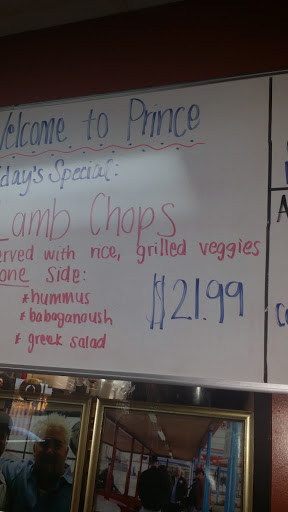 Welcome to Prince
day's Special:
Lamb Chops
erved with rice, grilled veggies
one side:
*hummus
*babaganoush
*greek salad
$21.99
A